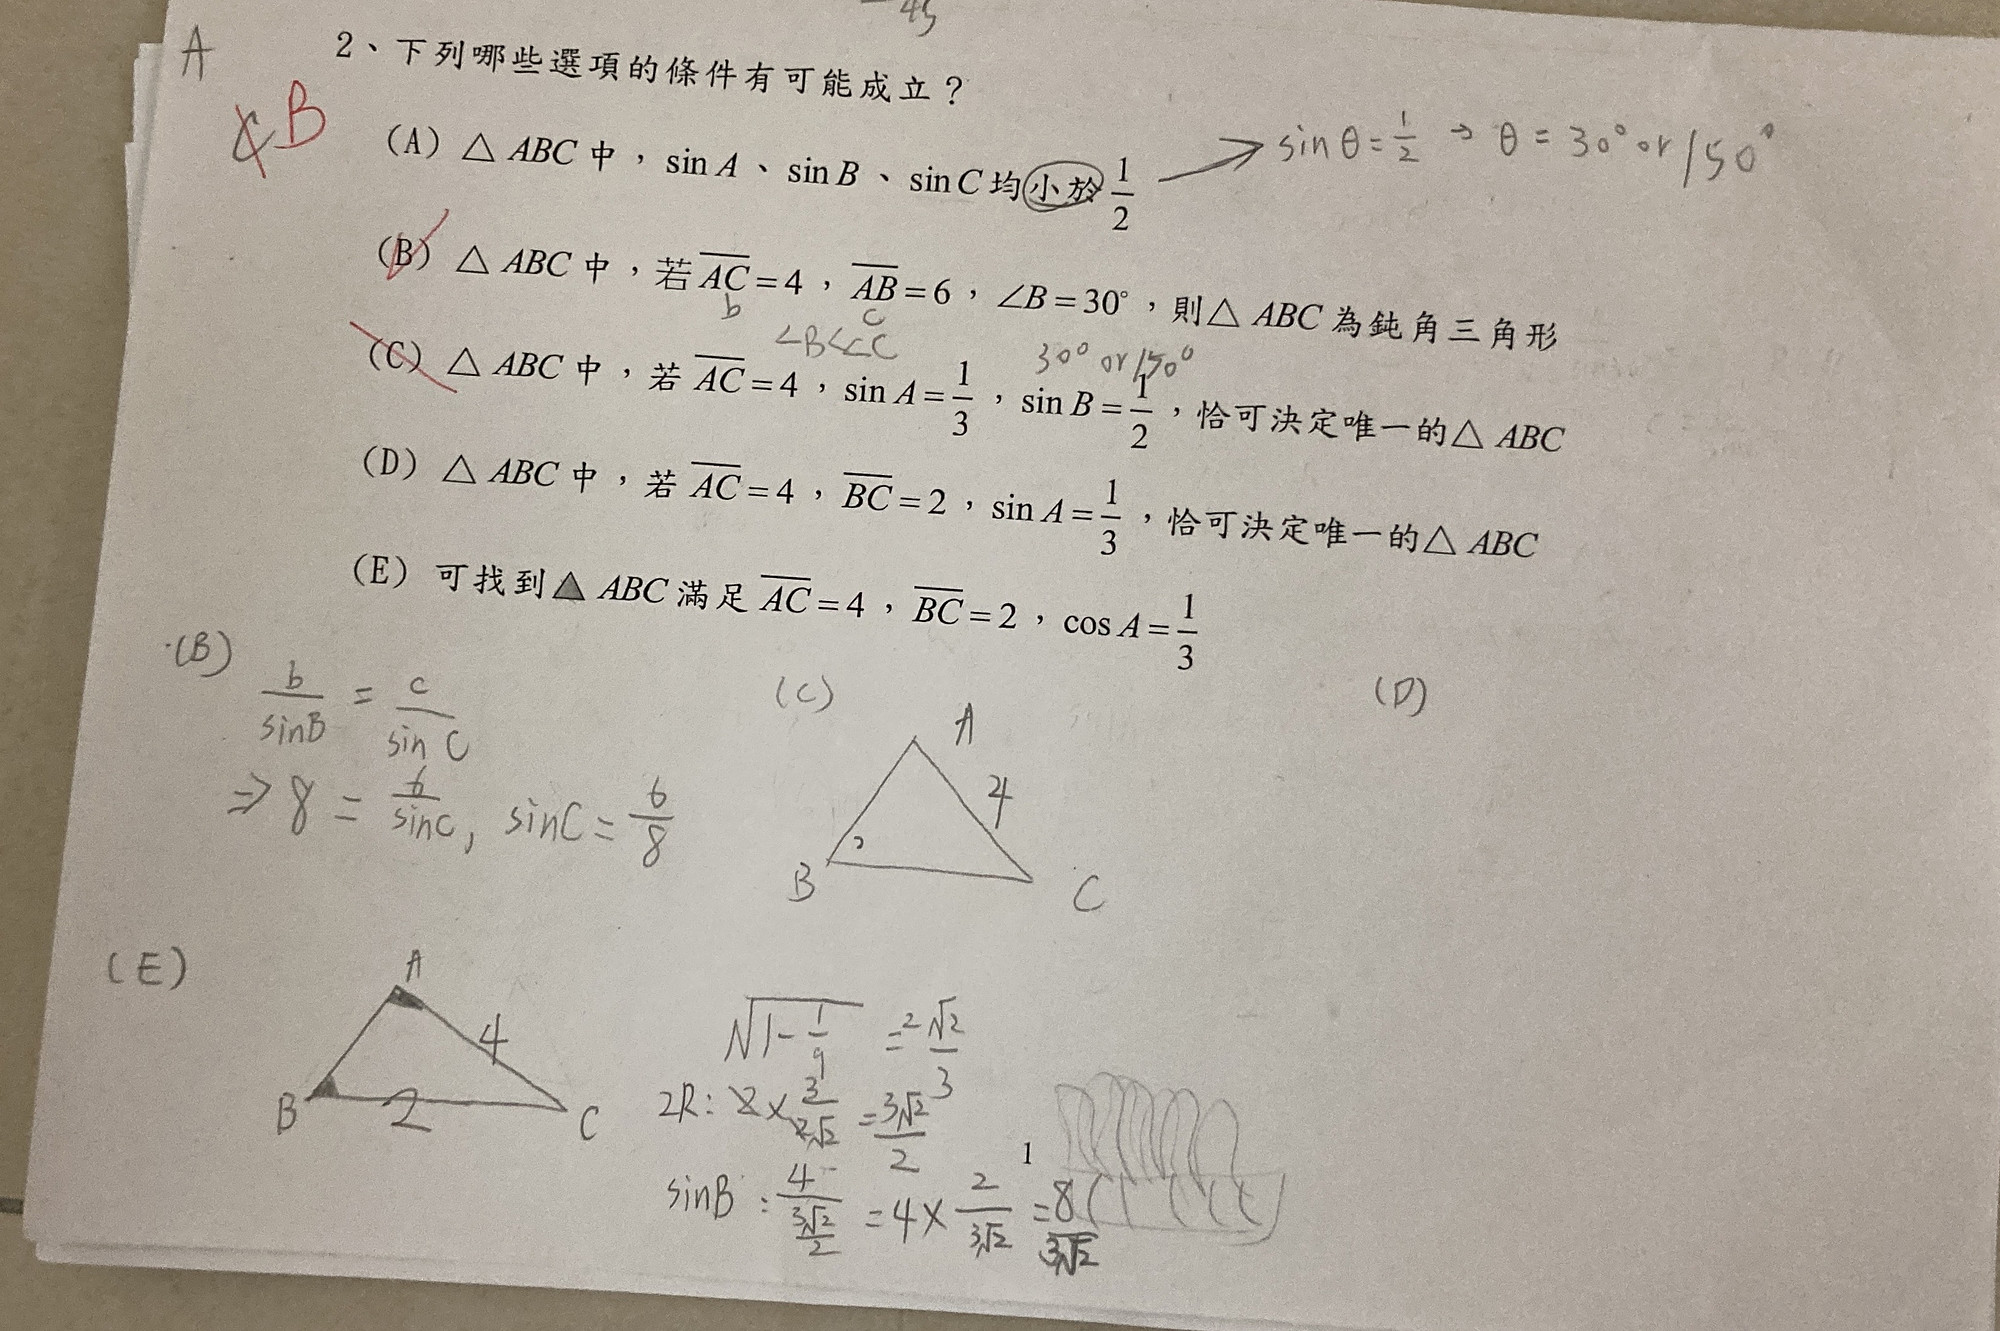 45
A
2、下列哪些選項的條件有可能成立？
B
(A) △ABC中，sin A、sin B、sin C均小於 1/2 → sinθ = 1/2 → θ = 30° or 150°
(B) △ABC中，若 AC = 4，AB = 6，∠B = 30°，則△ABC為鈍角三角形
b c
∠B<∠C 30° or 150°
(C) △ABC中，若 AC = 4，sin A = 1/3，sin B = 1/2，恰可決定唯一的△ABC
(D) △ABC中，若 AC = 4，BC = 2，sin A = 1/3，恰可決定唯一的△ABC
(E) 可找到△ABC滿足 AC = 4，BC = 2，cos A = 1/3
(B)
b/sinB = c/sin C
⇒ 8 = 6/sinC, sinC = 6/8
(C)
A
4
B
C
(D)
(E)
A
4
B
2
C
√(1-1/9) = 2√2/3
2R: 2 × 3/2√2 = 3√2/2
sinB : 4/(3√2/2) = 4 × 2/3√2 = 8/3√2
1